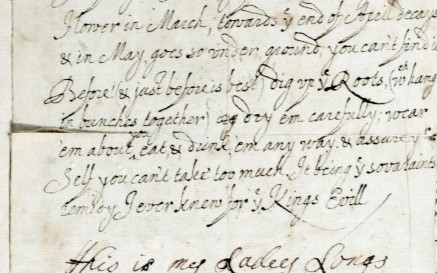 Flower in March, towards yͤ end of April decays
& in May, goes so under ground, you can't find it
Before (& just before is best) dig up yͤ Roots, (wͨʰ hang
in bunches together) & dry em carefully; wear
'em about yᵒᵘ, eat & drink 'em any way, & assure yͬ
Self you can't take too much. It being yͤ soveraint
remedy I ever knew for yͤ Kings Evill
This is my Ladees Longs